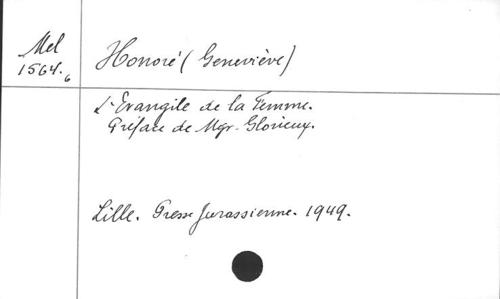 Mel
1564.6
Honoré (Geneviève)
L'Evangile de la Femme.
Préface de Mgr. Glorieux.
Lille. Presse Jurassienne. 1949.